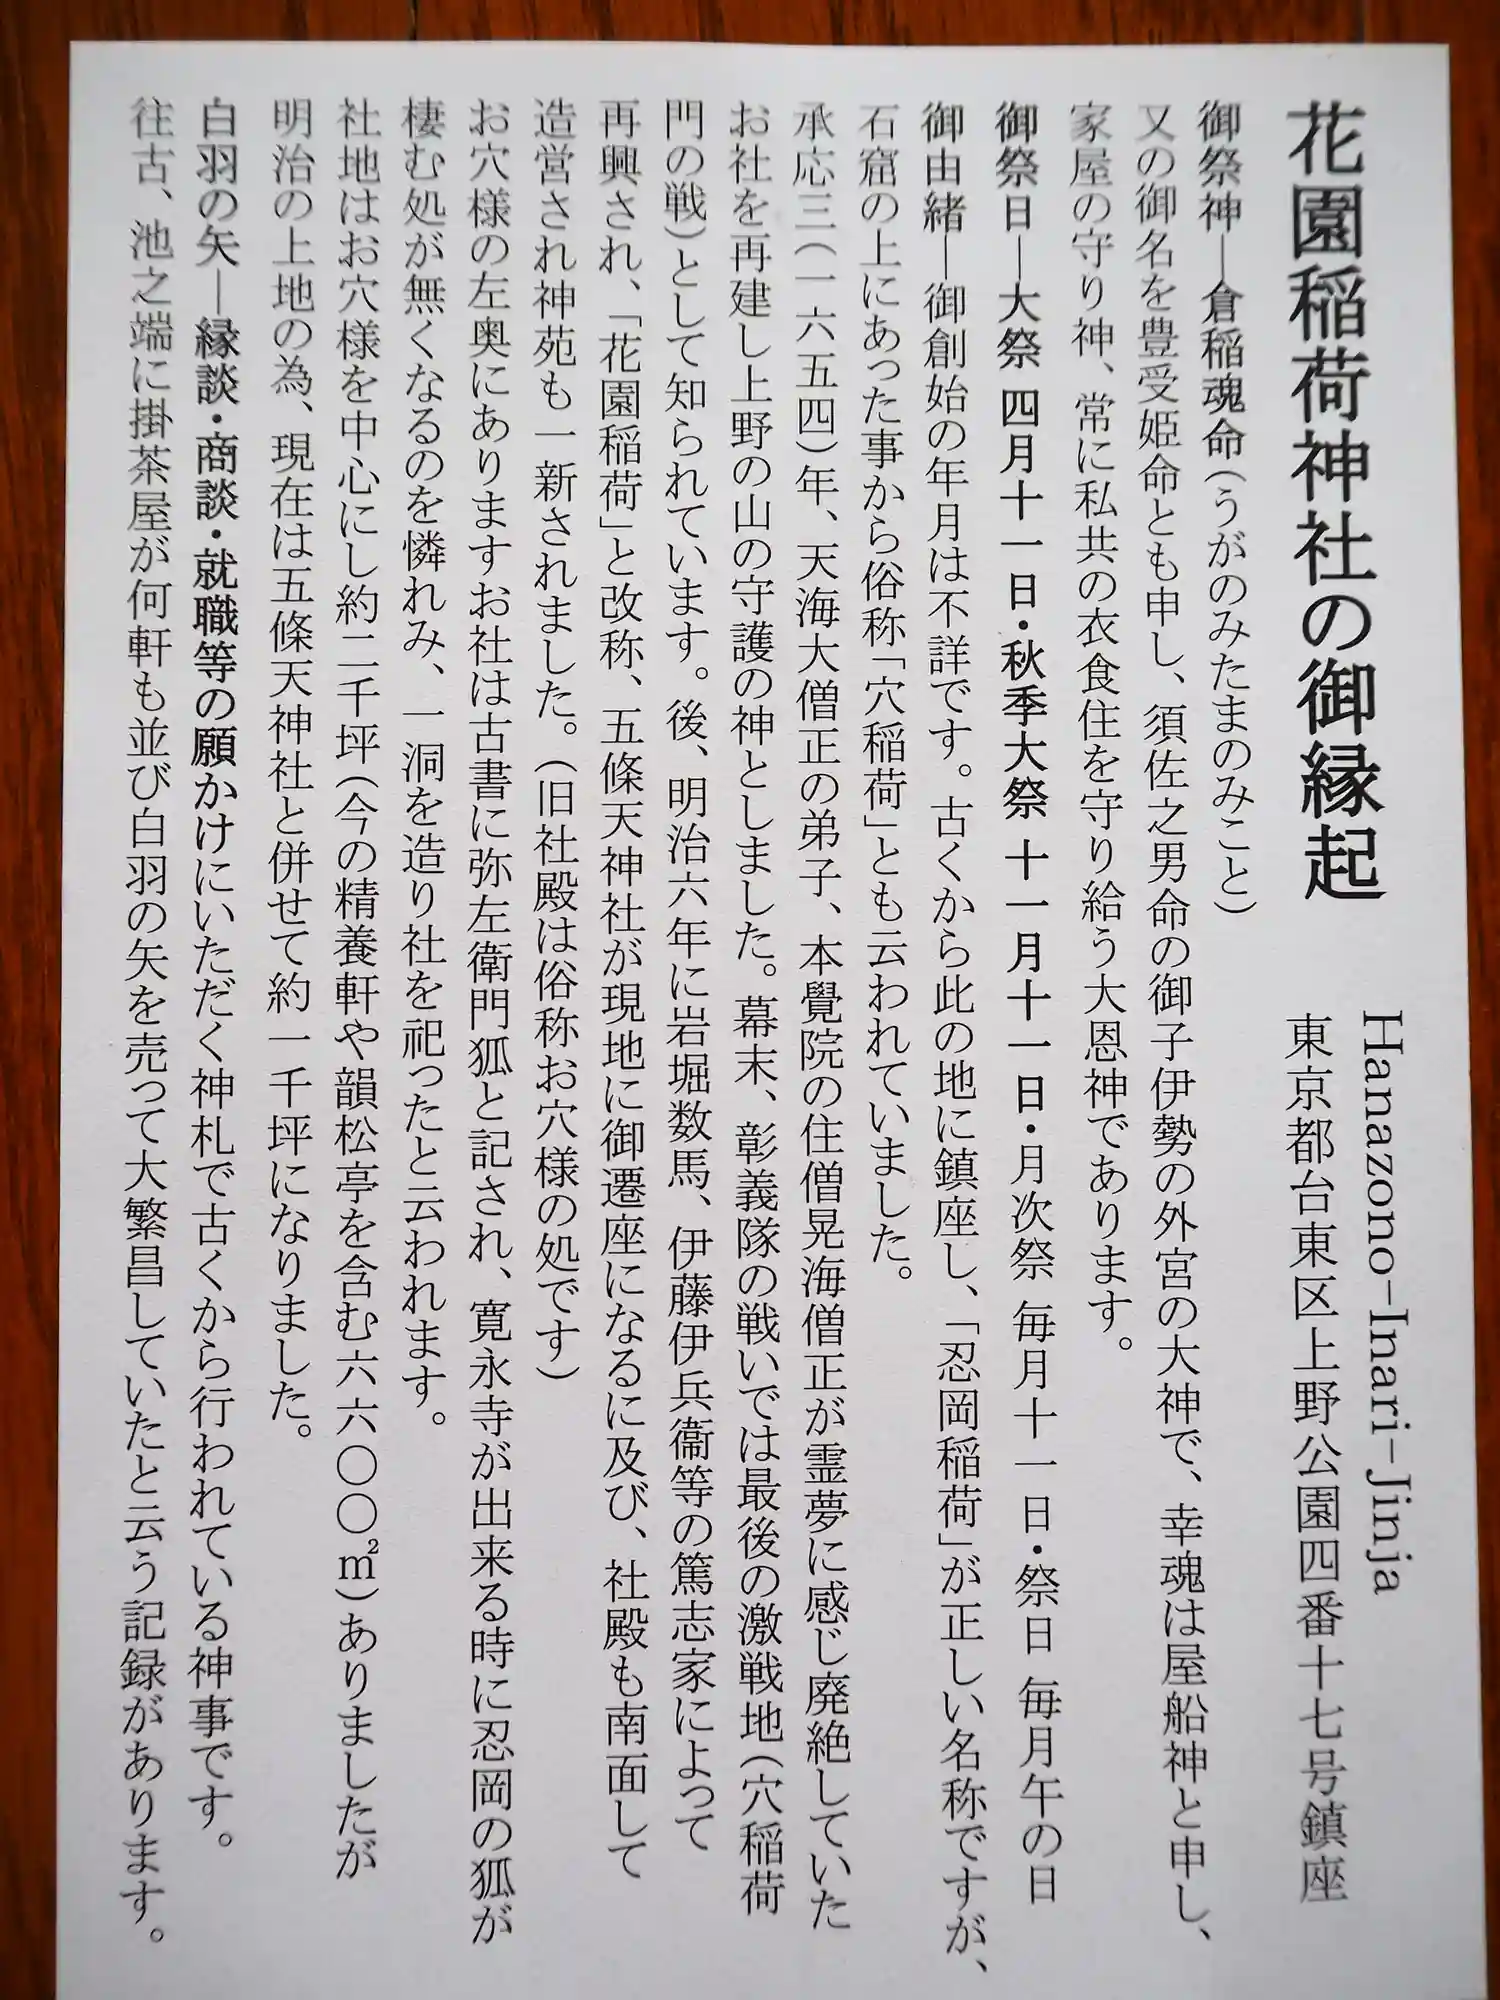 花園稲荷神社の御縁起
Hanazono-Inari-Jinja
東京都台東区上野公園四番十七号鎮座
御祭神―倉稲魂命（うがのみたまのみこと）
又の御名を豊受姫命とも申し、須佐之男命の御子伊勢の外宮の大神で、幸魂は屋船神と申し、
家屋の守り神、常に私共の衣食住を守り給う大恩神であります。
御祭日―大祭 四月十一日・秋季大祭 十一月十一日・月次祭 毎月十一日・祭日 毎月午の日
御由緒―御創始の年月は不詳です。古くから此の地に鎮座し、「忍岡稲荷」が正しい名称ですが、
石窟の上にあった事から俗称「穴稲荷」とも云われていました。
承応三（一六五四）年、天海大僧正の弟子、本覺院の住僧晃海僧正が霊夢に感じ廃絶していた
お社を再建し上野の山の守護の神としました。幕末、彰義隊の戦いでは最後の激戦地（穴稲荷
門の戦）として知られています。後、明治六年に岩堀数馬、伊藤伊兵衞等の篤志家によって
再興され、「花園稲荷」と改称、五條天神社が現地に御遷座になるに及び、社殿も南面して
造営され神苑も一新されました。（旧社殿は俗称お穴様の処です）
お穴様の左奥にありますお社は古書に弥左衛門狐と記され、寛永寺が出来る時に忍岡の狐が
棲む処が無くなるのを憐れみ、一洞を造り社を祀ったと云われます。
社地はお穴様を中心にし約二千坪（今の精養軒や韻松亭を含む六六〇〇㎡）ありましたが
明治の上地の為、現在は五條天神社と併せて約一千坪になりました。
白羽の矢―縁談・商談・就職等の願かけにいただく神札で古くから行われている神事です。
往古、池之端に掛茶屋が何軒も並び白羽の矢を売って大繁昌していたと云う記録があります。